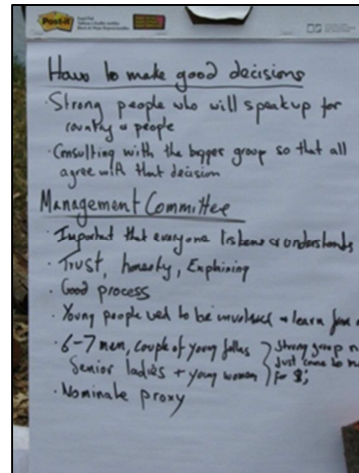 Post-it
How to make good decisions
· Strong people who will speak up for
country & people
· Consulting with the bigger group so that all
agree with that decision
Management Committee
· Important that everyone listens & understands
· Trust, honesty, Explaining
· Good process
· Young people need to be involved + learn from
· 6-7 men, couple of young fellas
Senior ladies + young women
strong group n
just come to m
for $;
· Nominate proxy